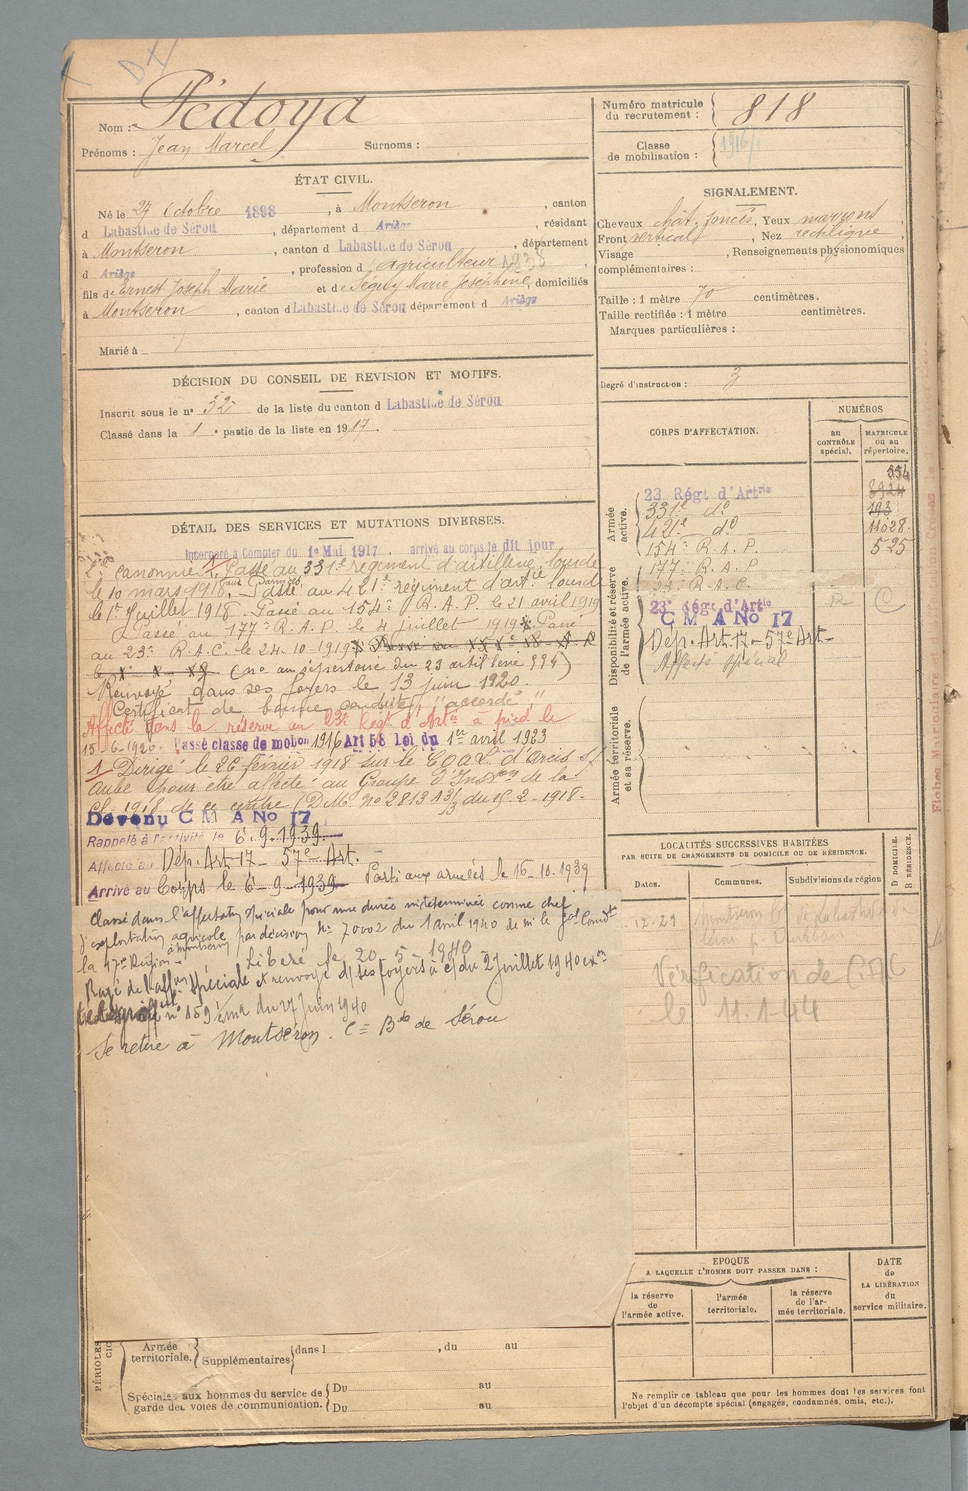 Nom : Pédoya
Prénoms : Jean Marcel Surnoms :
Numéro matricule
du recrutement : 818
Classe
de mobilisation : 1916/1
ÉTAT CIVIL.
Né le 27 Octobre 1898, à Montseron, canton
d Labastide de Sérou, département d Ariège, résidant
à Montseron, canton d Labastide de Sérou, département
d Ariège, profession d agriculteur 1938
fils de Ernest Joseph Marie et de Séguy Marie Joséphine, domiciliés
à Montseron, canton d Labastide de Sérou département d Ariège
Marié à
SIGNALEMENT.
Cheveux chât. foncés, Yeux marrons,
Front vertical, Nez rectiligne,
Visage , Renseignements physionomiques
complémentaires :
Taille : 1 mètre 70 centimètres.
Taille rectifiée : 1 mètre centimètres.
Marques particulières :
Degré d'instruction : 3
DÉCISION DU CONSEIL DE REVISION ET MOTIFS.
Inscrit sous le n° 32 de la liste du canton d Labastide de Sérou
Classé dans la 1 e partie de la liste en 1917.
CORPS D'AFFECTATION.
NUMÉROS
au
CONTRÔLE
spécial.
MATRICULE
ou au
répertoire.
Armée
active.
554
23 Régt d'Artie 3924
331e do 193
421e do 11028
154e R.A.P. 525
Disponibilité et réserve
de l'armée active.
177e R.A.P
23e R.A.C. R C
23e Régt d'Artie
C M A No 17
Dép. Art. 17 - 57e Art -
Affecté spécial
Armée territoriale
et sa réserve.
DÉTAIL DES SERVICES ET MUTATIONS DIVERSES.
Incorporé à Compter du 1er Mai 1917. arrivé au corps le dit jour
2me canonnier. 1 Passé au 331e régiment d'artillerie lourde
le 10 mars 1918, (aux Armées). Passé au 421e régiment d'artie lourd
le 1er Juillet 1918. Passé au 154e R.A.P. le 21 avril 1919
Passé au 177e R.A.P. le 4 juillet 1919. Passé
au 23e R.A.C. le 24-10-1919
(no au répertoire du 23 artillerie 554)
Renvoyé dans ses foyers le 13 juin 1920.
Certificat de bonne conduite "accordé"
Affecté dans la réserve au 23e Régt d'Artie à pied le
15-6-1920. Passé classe de mobon 1916 Art 58 loi du 1er avril 1923
1 Dirigé le 26 février 1918 sur le C.O.A.L. d'Arcis s/
Aube pour être affecté au Groupe d'Instron de la
cl. 1918 de ce centre (D.M. no 2813 A 3/3 du 15-2-1918.
Devenu C M A No 17
Rappelé à l'activité le 6.9.1939.
Affecté au Dép. Art 17 - 57e Art.
Arrivé au Corps le 6-9-1939 - Parti aux armées le 16-10-1939
Classé dans l'affectation spéciale pour une durée indéterminée comme chef
d'exploitation agricole à Montseron par décision No 70002 du 1 avril 1940 de Mr le Gal Comdt
la 17e Région -
Libéré le 20-5-1940
Rayé de l'affon spéciale et renvoyé ds ses foyers à c/ du 2 juillet 1940 exon
no 159 du 27 juin 1940
Se retire à Montseron. Con Bde de Sérou
LOCALITÉS SUCCESSIVES HABITÉES
PAR SUITE DE CHANGEMENTS DE DOMICILE OU DE RÉSIDENCE.
Dates. Communes. Subdivisions de région
D DOMICILE.
R RÉSIDENCE.
12-29 Montseron
Vérification de
le 11.1.44
EPOQUE
A LAQUELLE L'HOMME DOIT PASSER DANS :
la réserve
de
l'armée active.
l'armée
territoriale.
la réserve
de l'ar-
mée territoriale.
DATE
de
LA LIBÉRATION
du
service militaire.
Ne remplir ce tableau que pour les hommes dont les services font
l'objet d'un décompte spécial (engagés, condamnés, omis, etc.).
Armée
territoriale. Supplémentaires dans l , du au
Spéciale aux hommes du service de
garde des voies de communication. Du au
Du au